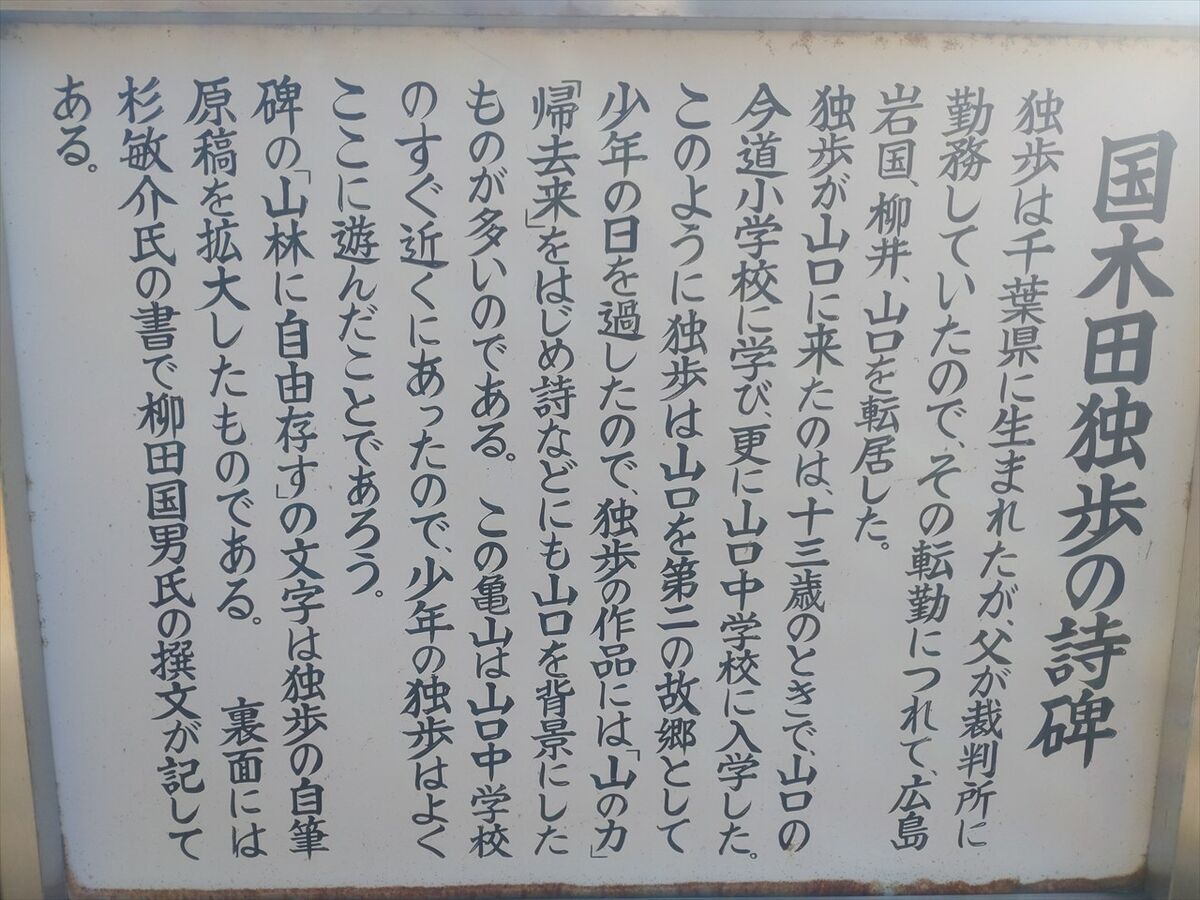 国木田独歩の詩碑
独歩は千葉県に生まれたが、父が裁判所に
勤務していたので、その転勤につれて、広島
岩国、柳井、山口を転居した。
独歩が山口に来たのは、十三歳のときで、山口の
今道小学校に学び、更に山口中学校に入学した。
このように独歩は山口を第二の故郷として
少年の日を過したので、独歩の作品には「山の力」
「帰去来」をはじめ詩などにも山口を背景にした
ものが多いのである。 この亀山は山口中学校
のすぐ近くにあったので、少年の独歩はよく
ここに遊んだことであろう。
碑の「山林に自由存す」の文字は独歩の自筆
原稿を拡大したものである。 裏面には
杉敏介氏の書で柳田国男氏の撰文が記して
ある。